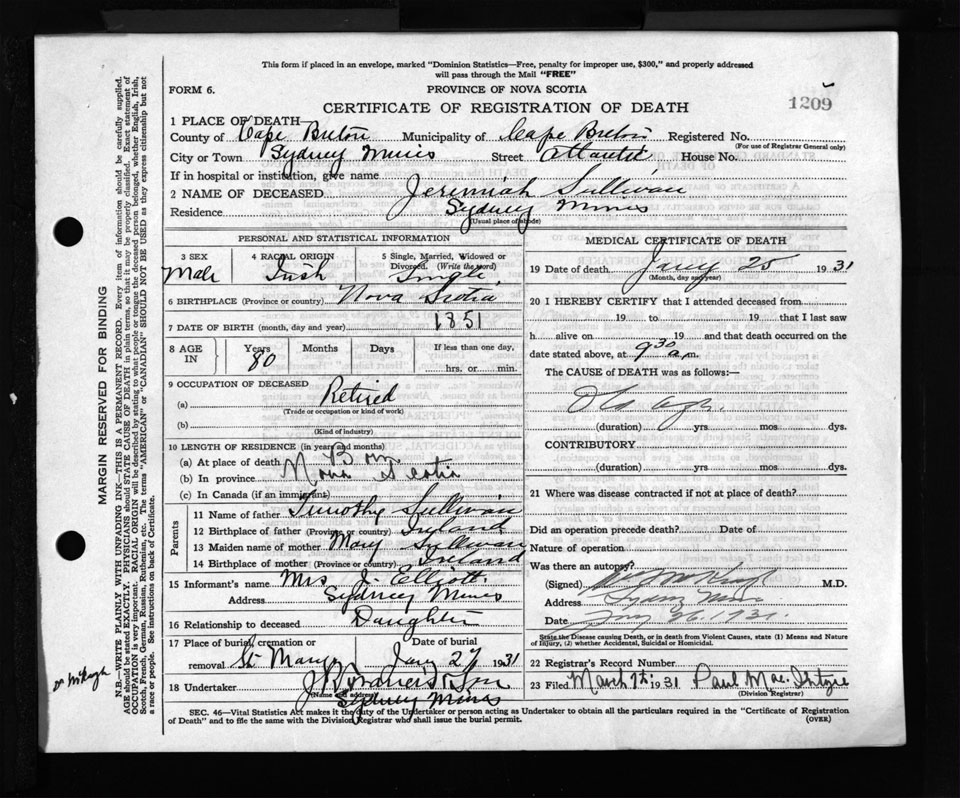 This form if placed in an envelope, marked "Dominion Statistics—Free, penalty for improper use, $300," and properly addressed
will pass through the Mail "FREE"
FORM 6. PROVINCE OF NOVA SCOTIA
CERTIFICATE OF REGISTRATION OF DEATH
1209
1 PLACE OF DEATH—
County of Cape Breton Municipality of Cape Breton Registered No.
(For use of Registrar General only)
City or Town Sydney Mines Street Atlantic House No.
If in hospital or institution, give name
2 NAME OF DECEASED Jeremiah Sullivan
Residence Sydney Mines
(Usual place of abode)
PERSONAL AND STATISTICAL INFORMATION
3 SEX 4 RACIAL ORIGIN 5 Single, Married, Widowed or Divorced. (Write the word)
Male Irish Single
6 BIRTHPLACE (Province or country) Nova Scotia
7 DATE OF BIRTH (month, day and year) 1851
8 AGE IN Years Months Days If less than one day,
80 hrs. or min.
9 OCCUPATION OF DECEASED
(a) Retired
(Trade or occupation or kind of work)
(b)
(Kind of industry)
10 LENGTH OF RESIDENCE (in years and months)
(a) At place of death Born
(b) In province Nova Scotia
(c) In Canada (if an immigrant)
Parents
11 Name of father Timothy Sullivan
12 Birthplace of father (Province or country) Ireland
13 Maiden name of mother Mary Sullivan
14 Birthplace of mother (Province or country) Ireland
15 Informant's name Mrs J. Elliott
Address Sydney Mines
16 Relationship to deceased Daughter
17 Place of burial, cremation or Date of burial
removal St Marys Jany 27 1931
18 Undertaker
(Name and address)
Sydney Mines
MEDICAL CERTIFICATE OF DEATH
19 Date of death Jany 25 1931
(Month, day and year)
20 I HEREBY CERTIFY that I attended deceased from
19 to 19 that I last saw
h alive on 19 and that death occurred on the
date stated above, at 9 30 a.m.
The CAUSE OF DEATH was as follows:—
Old age
(duration) yrs. mos. dys.
CONTRIBUTORY
(duration) yrs. mos. dys.
21 Where was disease contracted if not at place of death?
Did an operation precede death? Date of
Nature of operation
Was there an autopsy?
(Signed) M.D.
Address Sydney Mines
Date Jany 26. 1931.
State the Disease causing Death, or in death from Violent Causes, state (1) Means and Nature
of Injury, (2) whether Accidental, Suicidal or Homicidal.
22 Registrar's Record Number
23 Filed March 7th 1931 Paul
(Division Registrar)
SEC. 46—Vital Statistics Act makes it the duty of the Undertaker or person acting as Undertaker to obtain all the particulars required in the "Certificate of Registration
of Death" and to file the same with the Division Registrar who shall issue the burial permit. (OVER)
MARGIN RESERVED FOR BINDING
N.B.—WRITE PLAINLY WITH UNFADING INK—THIS IS A PERMANENT RECORD. Every item of information should be carefully supplied.
AGE should be stated EXACTLY. PHYSICIANS should STATE CAUSE OF DEATH in plain terms, so that it may be properly classified. Exact statement of
OCCUPATION is very important. RACIAL ORIGIN will be described by stating to what people or tongue the deceased person belonged, whether English, Irish,
Scotch, French, German, Russian, Ruthenian, etc. The terms "AMERICAN" or "CANADIAN" SHOULD NOT BE USED as they express citizenship but not
a race or people. See instructions on back of Certificate.